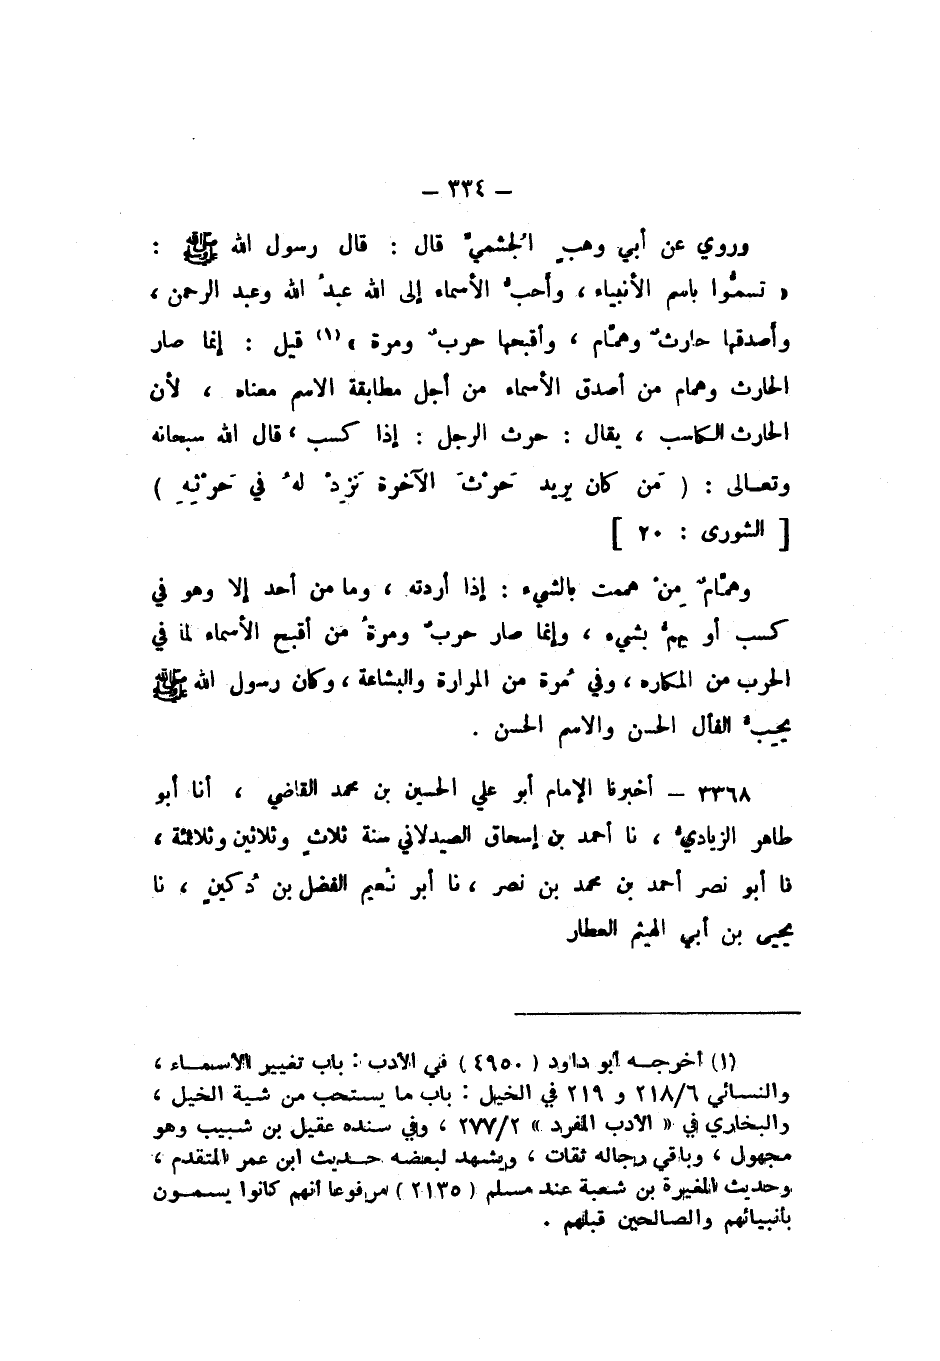 — ٣٣٤ —
وروي عن أبي وهبٍ الجُشميّ قال : قال رسول الله ﷺ :
« تسمُّوا باسم الأنبياء ، وأحبُّ الأسماء إلى الله عبدُ الله وعبد الرحمن ،
وأصدقها حارثٌ وهمّام ، وأقبحها حربٌ ومرة »(١) قيل : إنما صار
الحارث وهمام من أصدق الأسماء من أجل مطابقة الاسم معناه ، لأن
الحارث الكاسب ، يقال : حرث الرجل : إذا كسب ، قال الله سبحانه
وتعالى : ( مَن كان يريد حَرْثَ الآخرة نَزِدْ لهُ في حَرْثِهِ )
[ الشورى : ٢٠ ]
وهمّامٌ مِنْ هممت بالشيء : إذا أردته ، وما من أحد إلا وهو في
كسب أو يهمُّ بشيء ، وإنما صار حربٌ ومرةُ من أقبح الأسماء لما في
الحرب من المكاره ، وفي مُرة من المرارة والبشاعة ، وكان رسول الله ﷺ
يحِبُّ الفأل الحسن والاسم الحسن .
٣٣٦٨ — أخبرنا الإمام أبو علي الحسين بن محمد القاضي ، أنا أبو
طاهر الزياديُّ ، نا أحمد بن إسحاق الصيدلاني سنة ثلاثٍ وثلاثين وثلاثمئة ،
نا أبو نصر أحمد بن محمد بن نصر ، نا أبو نُعيم الفضل بن دُكينٍ ، نا
يحيى بن أبي الهيثم العطار
(١) أخرجه أبو داود ( ٤٩٥٠ ) في الأدب : باب تغيير الأسماء ،
والنسائي ٢١٨/٦ و ٢١٩ في الخيل : باب ما يستحب من شية الخيل ،
والبخاري في « الأدب المفرد » ٢٧٧/٢ ، وفي سنده عقيل بن شبيب وهو
مجهول ، وباقي رجاله ثقات ، ويشهد لبعضه حديث ابن عمر المتقدم ،
وحديث المغيرة بن شعبة عند مسلم ( ٢١٣٥ ) مرفوعا أنهم كانوا يسمون
بأنبيائهم والصالحين قبلهم .